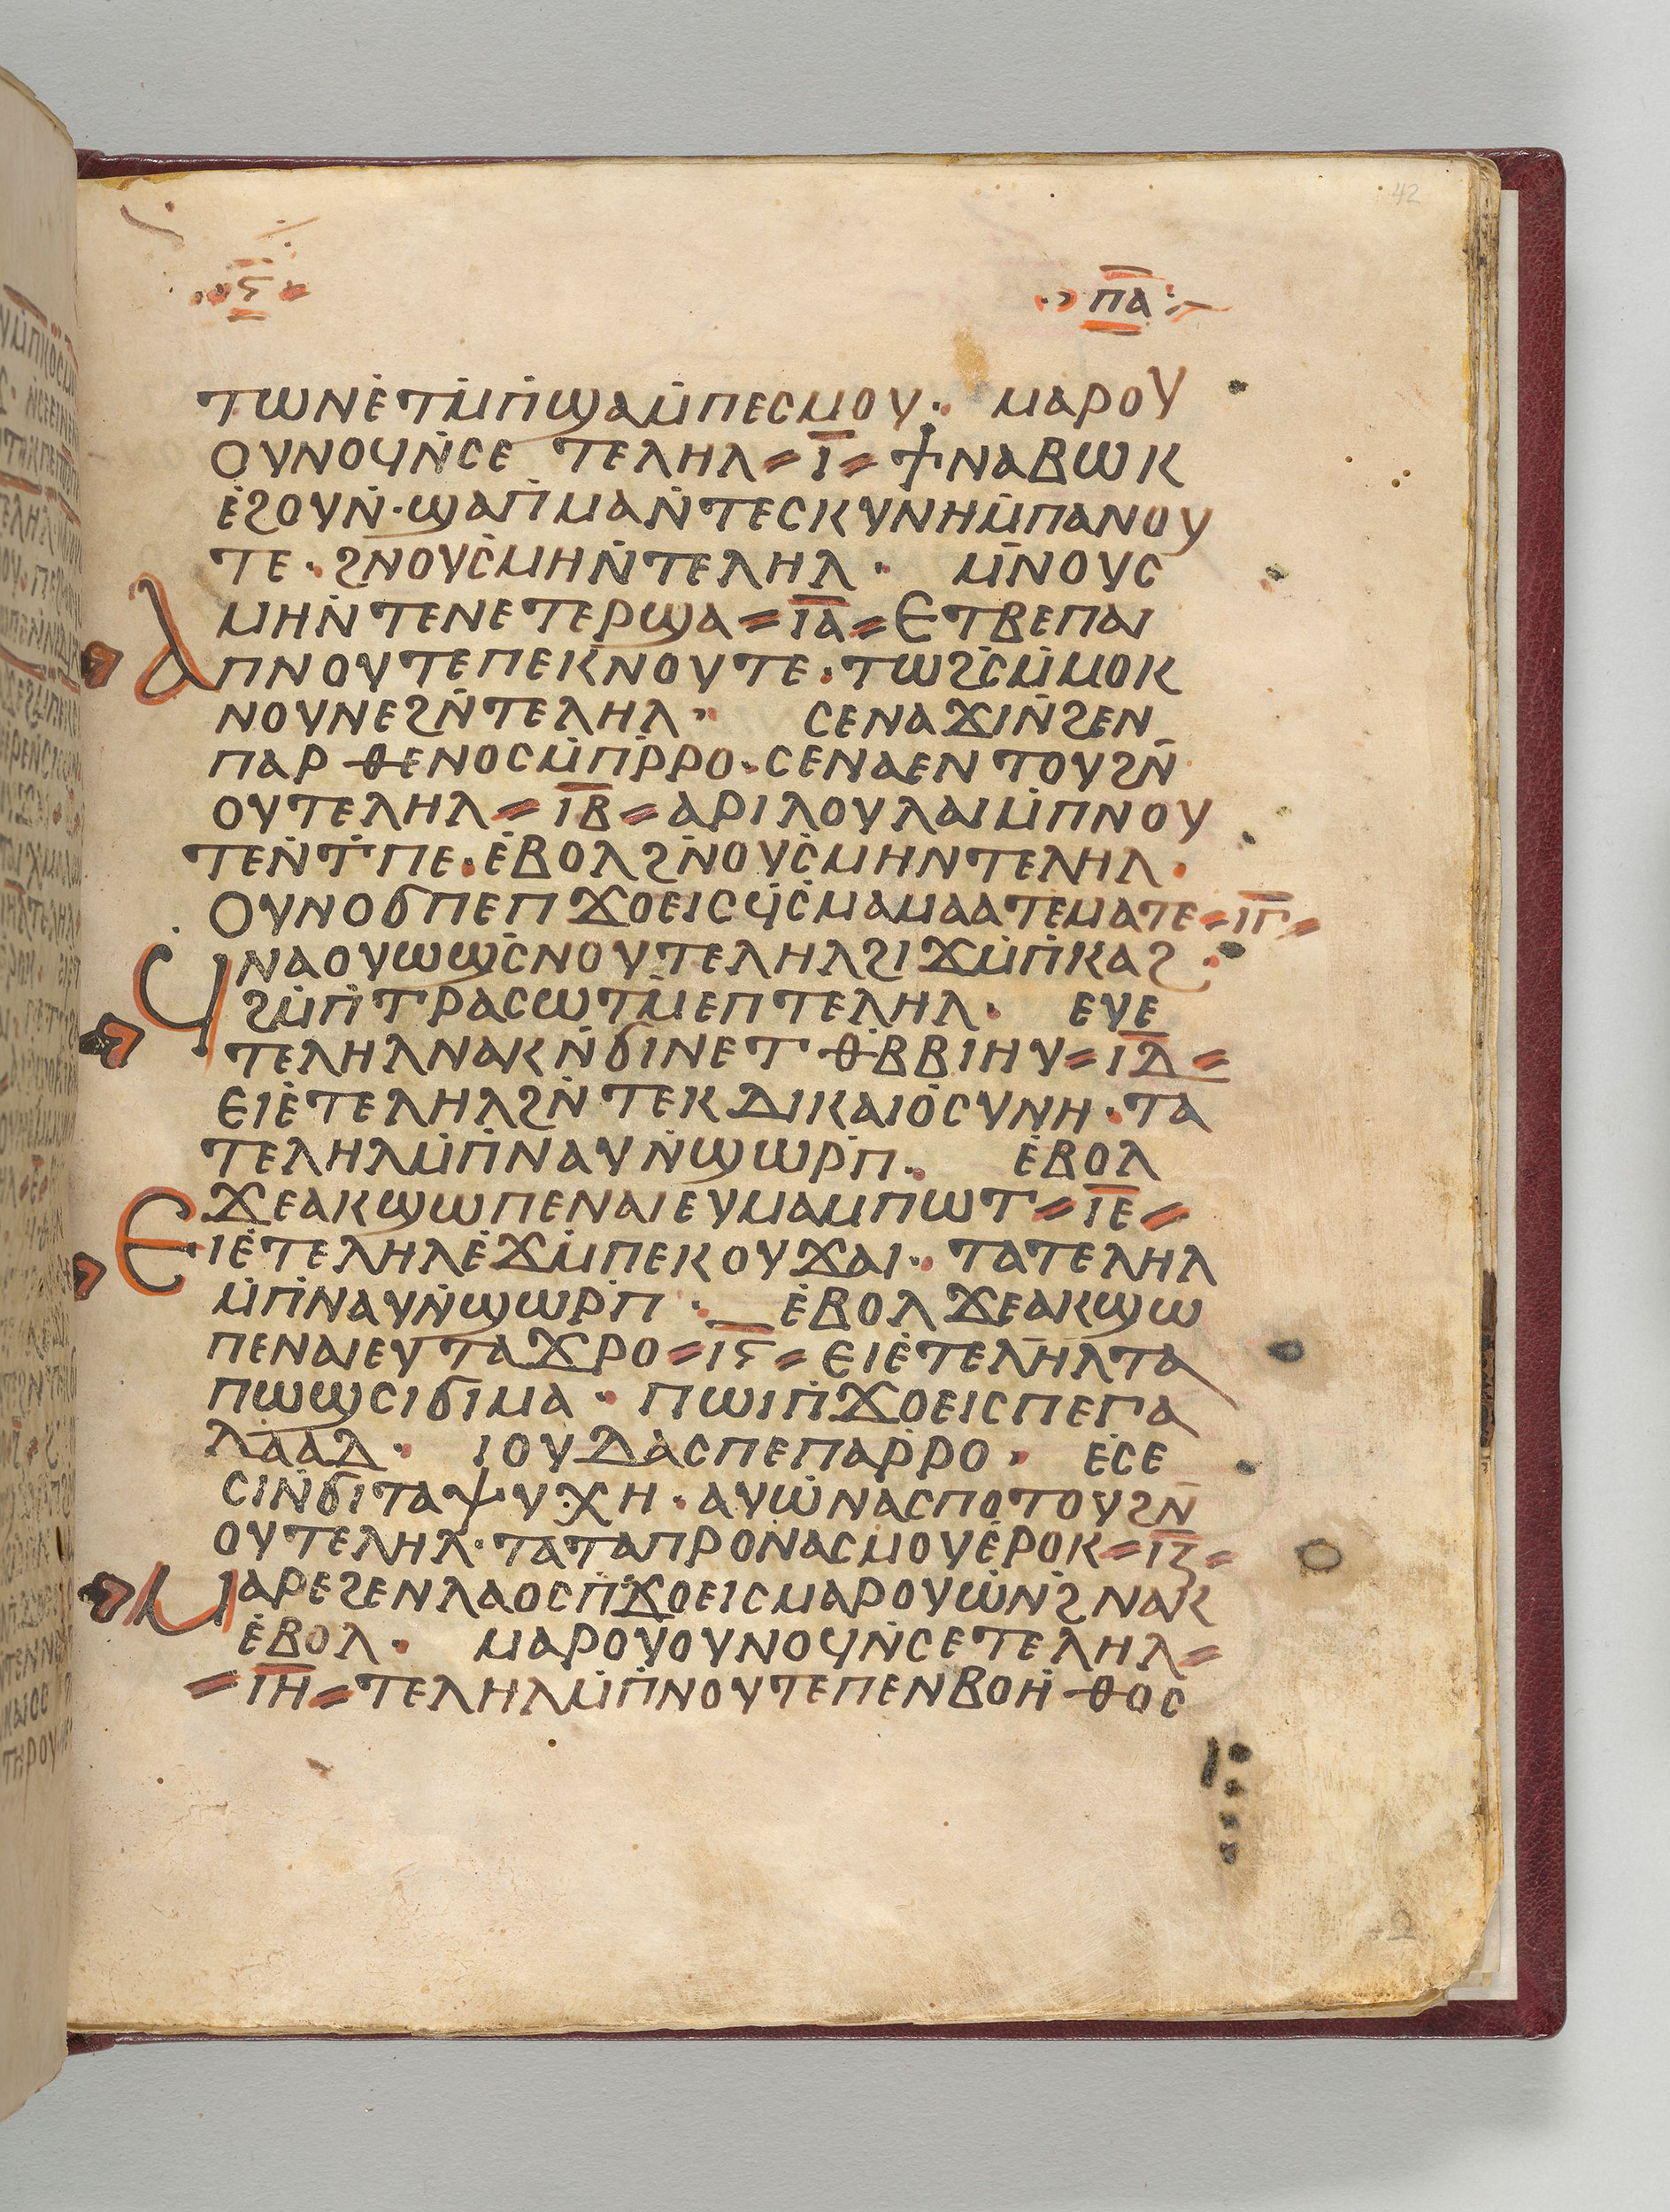 42
ⲋ̅ ⲡⲁ̅
ⲧⲱⲛⲉ̇ⲧⲙ̇ⲡ̇ϣⲁⲙ̇ⲡⲉⲥⲙⲟⲩ· ⲙⲁⲣⲟⲩ
ⲟⲩⲛⲟϥⲛ̇ⲥⲉ ⲧⲉⲗⲏⲗ=ⲓ̅=ϯⲛⲁⲃⲱⲕ
ⲉ̇ϩⲟⲩⲛ̇·ϣⲁⲡ̇ⲙⲁⲛ̇ⲧⲉⲥⲕⲩⲛⲏⲙ̇ⲡⲁⲛⲟⲩ
ⲧⲉ·ϩⲛⲟⲩⲥ̇ⲙⲏⲛ̇ⲧⲉⲗⲏⲗ· ⲙⲛ̇ⲟⲩⲥ
ⲙⲏⲛ̇ⲧⲉⲛⲉⲧⲉⲣϣⲁ=ⲓ̅ⲁ̅=ⲉⲧⲃⲉⲡⲁⲓ
ⲁⲡⲛⲟⲩⲧⲉⲡⲉⲕⲛⲟⲩⲧⲉ·ⲧⲱϩ̇ⲥⲙ̇ⲙⲟⲕ
ⲛⲟⲩⲛⲉϩⲛ̇ⲧⲉⲗⲏⲗ· ⲥⲉⲛⲁϫⲓⲛ̇ϩⲉⲛ
ⲡⲁⲣⲑⲉⲛⲟⲥⲙ̇ⲡⲣ̇ⲣⲟ·ⲥⲉⲛⲁⲉⲛⲧⲟⲩϩⲛ̅
ⲟⲩⲧⲉⲗⲏⲗ=ⲓ̅ⲃ̅=ⲁⲣⲓⲗⲟⲩⲗⲁⲓⲙ̇ⲡⲛⲟⲩ
ⲧⲉⲛ̇ⲧ̇ⲡⲉ·ⲉ̇ⲃⲟⲗϩⲛ̇ⲟⲩⲥ̇ⲙⲏⲛⲧⲉⲗⲏⲗ·
ⲟⲩⲛⲟϭⲡⲉⲡϫⲟⲉⲓⲥϥ̇ⲥ̇ⲙⲁⲙⲁⲁⲧⲉⲙⲁⲧⲉ=ⲓ̅ⲅ̅=
ϥⲛⲁⲟⲩⲱϣ̇ⲥⲛⲟⲩⲧⲉⲗⲏⲗϩⲓϫⲙ̇ⲡ̇ⲕⲁϩ·
ϩⲙ̇ⲡ̇ⲧⲣⲁⲥⲱⲧⲙ̇ⲉⲡⲧⲉⲗⲏⲗ· ⲉⲩⲉ
ⲧⲉⲗⲏⲗⲛⲁⲕⲛ̇ϭⲓⲛⲉⲧⲑ̇ⲃⲃⲓⲏⲩ=ⲓ̅ⲇ̅=
ⲉⲓⲉ̇ⲧⲉⲗⲏⲗϩⲛ̇ⲧⲉⲕⲇⲓⲕⲁⲓⲟ̇ⲥⲩⲛⲏ·ⲧⲁ
ⲧⲉⲗⲏⲗⲙ̇ⲡ̇ⲛⲁⲩⲛ̇ϣⲱⲣ̇ⲡ· ⲉ̇ⲃⲟⲗ
ϫⲉⲁⲕϣⲱⲡⲉⲛⲁⲓⲉⲩⲙⲁⲙⲡⲱⲧ=ⲓ̅ⲉ̅=
ⲉⲓⲉ̇ⲧⲉⲗⲏⲗⲉ̇ϫⲙ̇ⲡⲉⲕⲟⲩϫⲁⲓ· ⲧⲁⲧⲉⲗⲏⲗ
ⲙ̇ⲡ̇ⲛⲁⲩⲛ̇ϣⲱⲣ̇ⲡ· ⲉ̇ⲃⲟⲗϫⲉⲁⲕϣⲱ
ⲡⲉⲛⲁⲓⲉⲩⲧⲁϫⲣⲟ=ⲓ̅ⲋ̅=ⲉⲓⲉ̇ⲧⲉⲗⲏⲗⲧⲁ
ⲡⲱϣⲥⲓϭⲓⲙⲁ· ⲡⲱⲓⲡ̇ϫⲟⲉⲓⲥⲡⲉⲅⲁ
ⲗⲁⲁⲇ· ⲓⲟⲩⲇⲁⲥⲡⲉⲡⲁⲣ̇ⲣⲟ· ⲉ̇ⲥⲉ
ⲥⲓⲛ̇ϭⲓⲧⲁⲯⲩⲭⲏ·ⲁⲩⲱ̇ⲛⲁⲥⲡⲟⲧⲟⲩϩⲛ̅
ⲟⲩⲧⲉⲗⲏⲗ·ⲧⲁⲧⲁⲡⲣⲟⲛ̇ⲁⲥⲙⲟⲩⲉ̇ⲣⲟⲕ=ⲓ̅ⲍ̅=
ⲙⲁⲣⲉϩⲉⲛⲗⲁⲟⲥⲡ̇ϫⲟⲉⲓⲥⲙⲁⲣⲟⲩⲱ̇ⲛ̇ϩⲛⲁⲕ
ⲉ̇ⲃⲟⲗ· ⲙⲁⲣⲟⲩⲟⲩⲛⲟϥⲛ̇ⲥⲉⲧⲉⲗⲏⲗ=
=ⲓ̅ⲏ̅=ⲧⲉⲗⲏⲗⲙ̇ⲡ̇ⲛⲟⲩⲧⲉⲡⲉⲛⲃⲟⲏ̇ⲑⲟⲥ